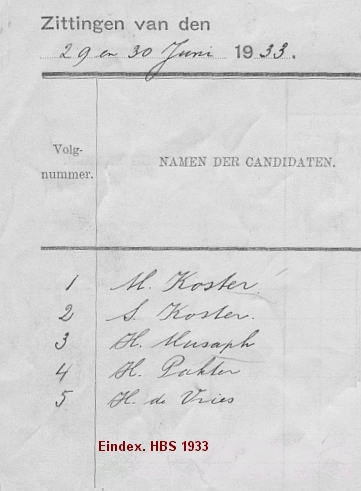 Zittingen van den
29 en 30 Juni 1933.
Volg-
nummer.
NAMEN DER CANDIDATEN.
1 M. Koster
2 S. Koster.
3 H. Musaph
4 H. Pakter
5 H. de Vries
Eindex. HBS 1933